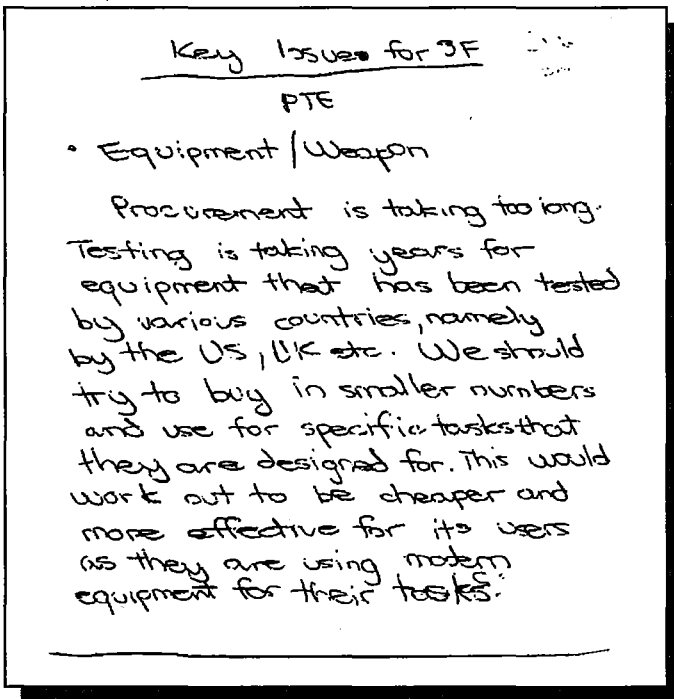 Key Issues for 3F
PTE
• Equipment / Weapon
Procurement is taking too long.
Testing is taking years for
equipment that has been tested
by various countries, namely
by the US, UK etc. We should
try to buy in smaller numbers
and use for specific tasks that
they are designed for. This would
work out to be cheaper and
more effective for its users
as they are using modern
equipment for their tasks.